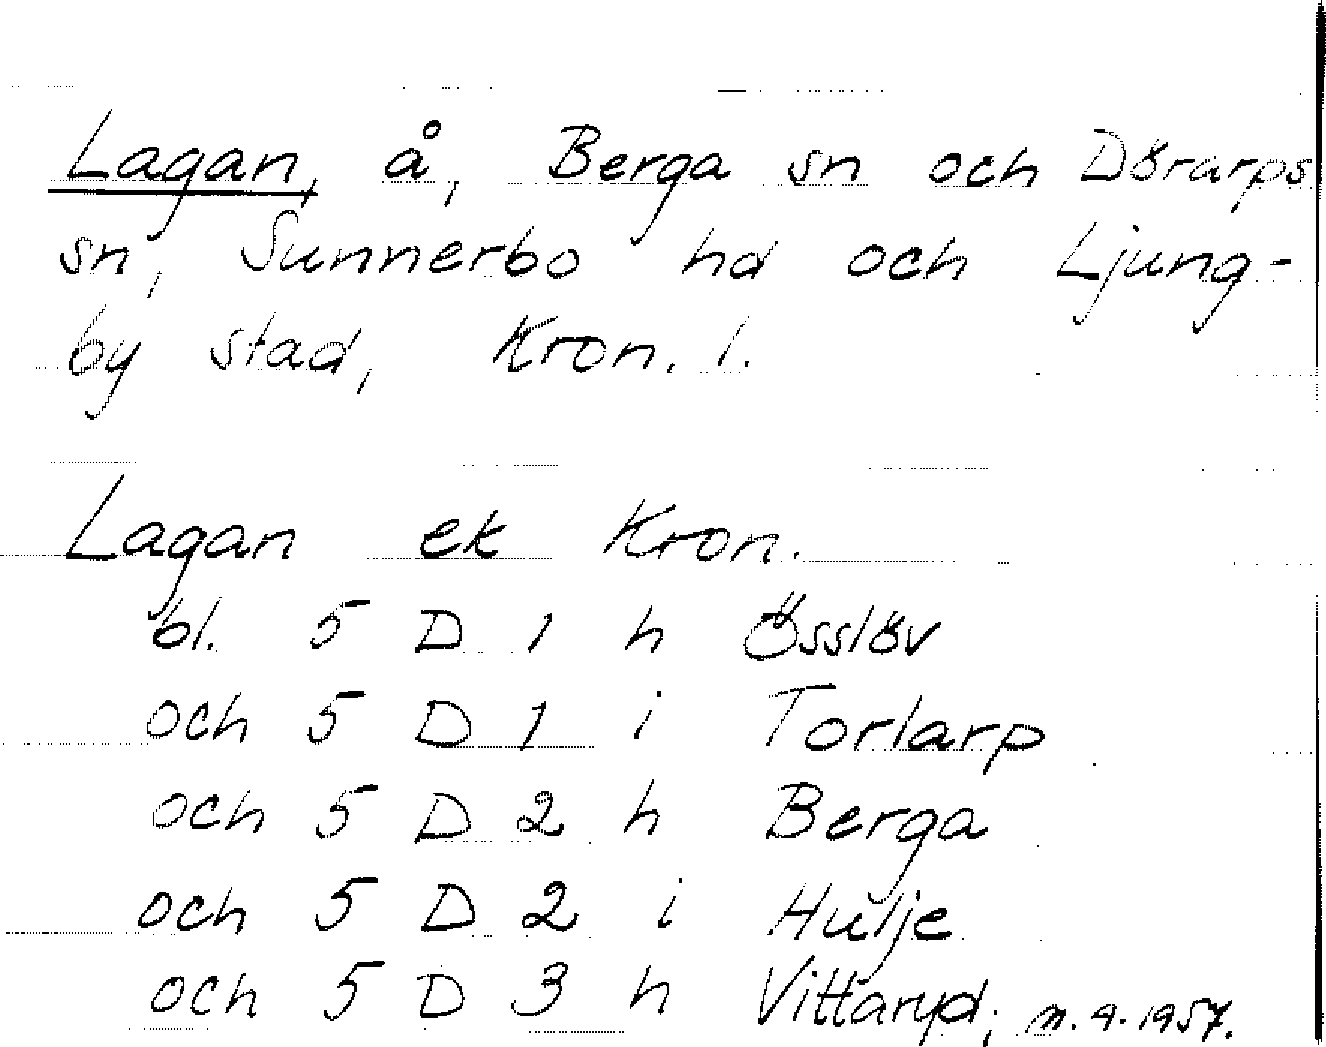 Lagan, å, Berga sn och Dörarps
sn, Sunnerbo hd och Ljung-
by stad, Kron. l.
Lagan ek Kron.
bl. 5 D 1 h Össlöv
och 5 D 1 i Torlarp
och 5 D 2 h Berga
och 5 D 2 i Hulje
och 5 D 3 h Vittaryd; m. 9. 1957.